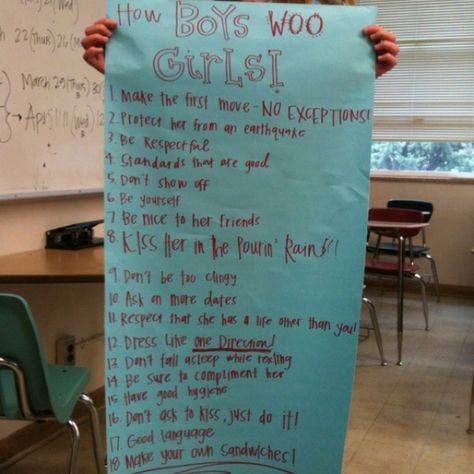 How BOYS WOO
GirLS!
1. Make the first move - NO EXCEPTIONS!
2. Protect her from an earthquake
3. Be Respectful
4. Standards that are good
5. Don't show off
6. Be yourself
7. Be nice to her friends
8. KIss Her in the Pourin' Rain!!
9. Don't be too clingy
10. Ask on more dates
11. Respect that she has a life other than you!
12. Dress Like One Direction!
13. Don't fall asleep while texting
14. Be sure to compliment her
15. Have good hygiene
16. Don't ask to kiss, just do it!
17. Good language
18. Make your own Sandwiches!
March
22 (Thurs) 26
March 29 (Thurs) 30
April